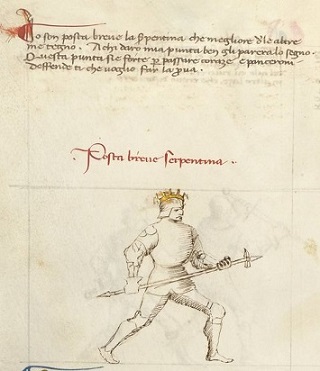 Io son posta breve la serpentina che megliore de le altre
me tegno. A chi daro mia punta ben gli parera lo segno.
Questa punta sie forte per passare coraze e panceroni
deffende ti che voglio far la prova.
Posta breve serpentina..